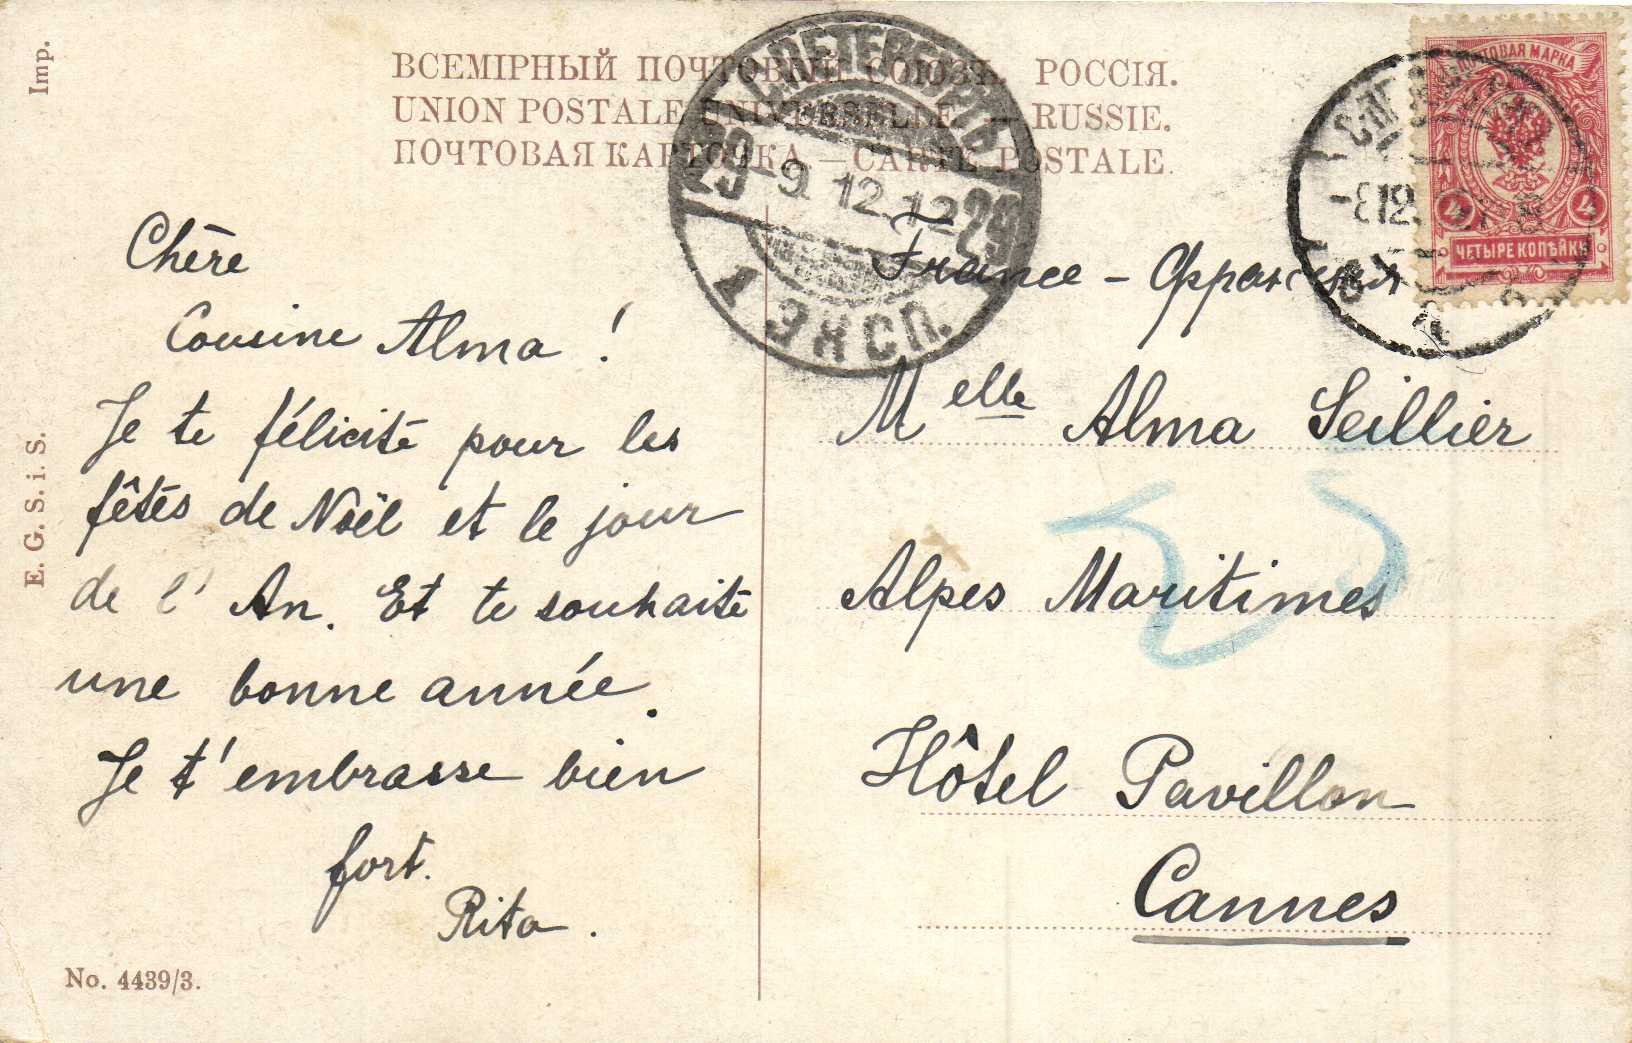 Imp.
ВСЕМІРНЫЙ ПОЧТОВЫЙ СОЮЗЪ. РОССІЯ.
UNION POSTALE UNIVERSELLE. — RUSSIE.
ПОЧТОВАЯ КАРТОЧКА — CARTE POSTALE.
С.ПЕТЕРБУРГЪ
29 -9.12.12 29
1 ЭКСП.
ПОЧТОВАЯ МАРКА
4 4
ЧЕТЫРЕ КОПѢЙКИ
Chère
Cousine Alma !
Je te félicite pour les
fêtes de Noël et le jour
de l' An. Et te souhaite
une bonne année.
Je t'embrasse bien
fort.
Rita.
E. G. S. i. S.
No. 4439/3.
France - Франція
Melle Alma Seillier
Alpes Maritimes
Hôtel Pavillon
Cannes